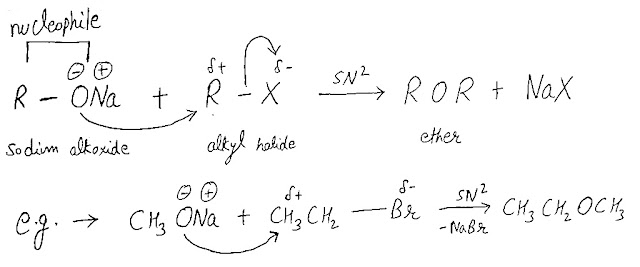 nucleophile
⊖ ⊕ δ+ δ-
R - ONa + R - X SN² → R O R + NaX
sodium alkoxide alkyl halide ether
⊖ ⊕ δ+ δ-
e.g. → CH₃ ONa + CH₃ CH₂ — Br SN² → -NaBr CH₃ CH₂ OCH₃